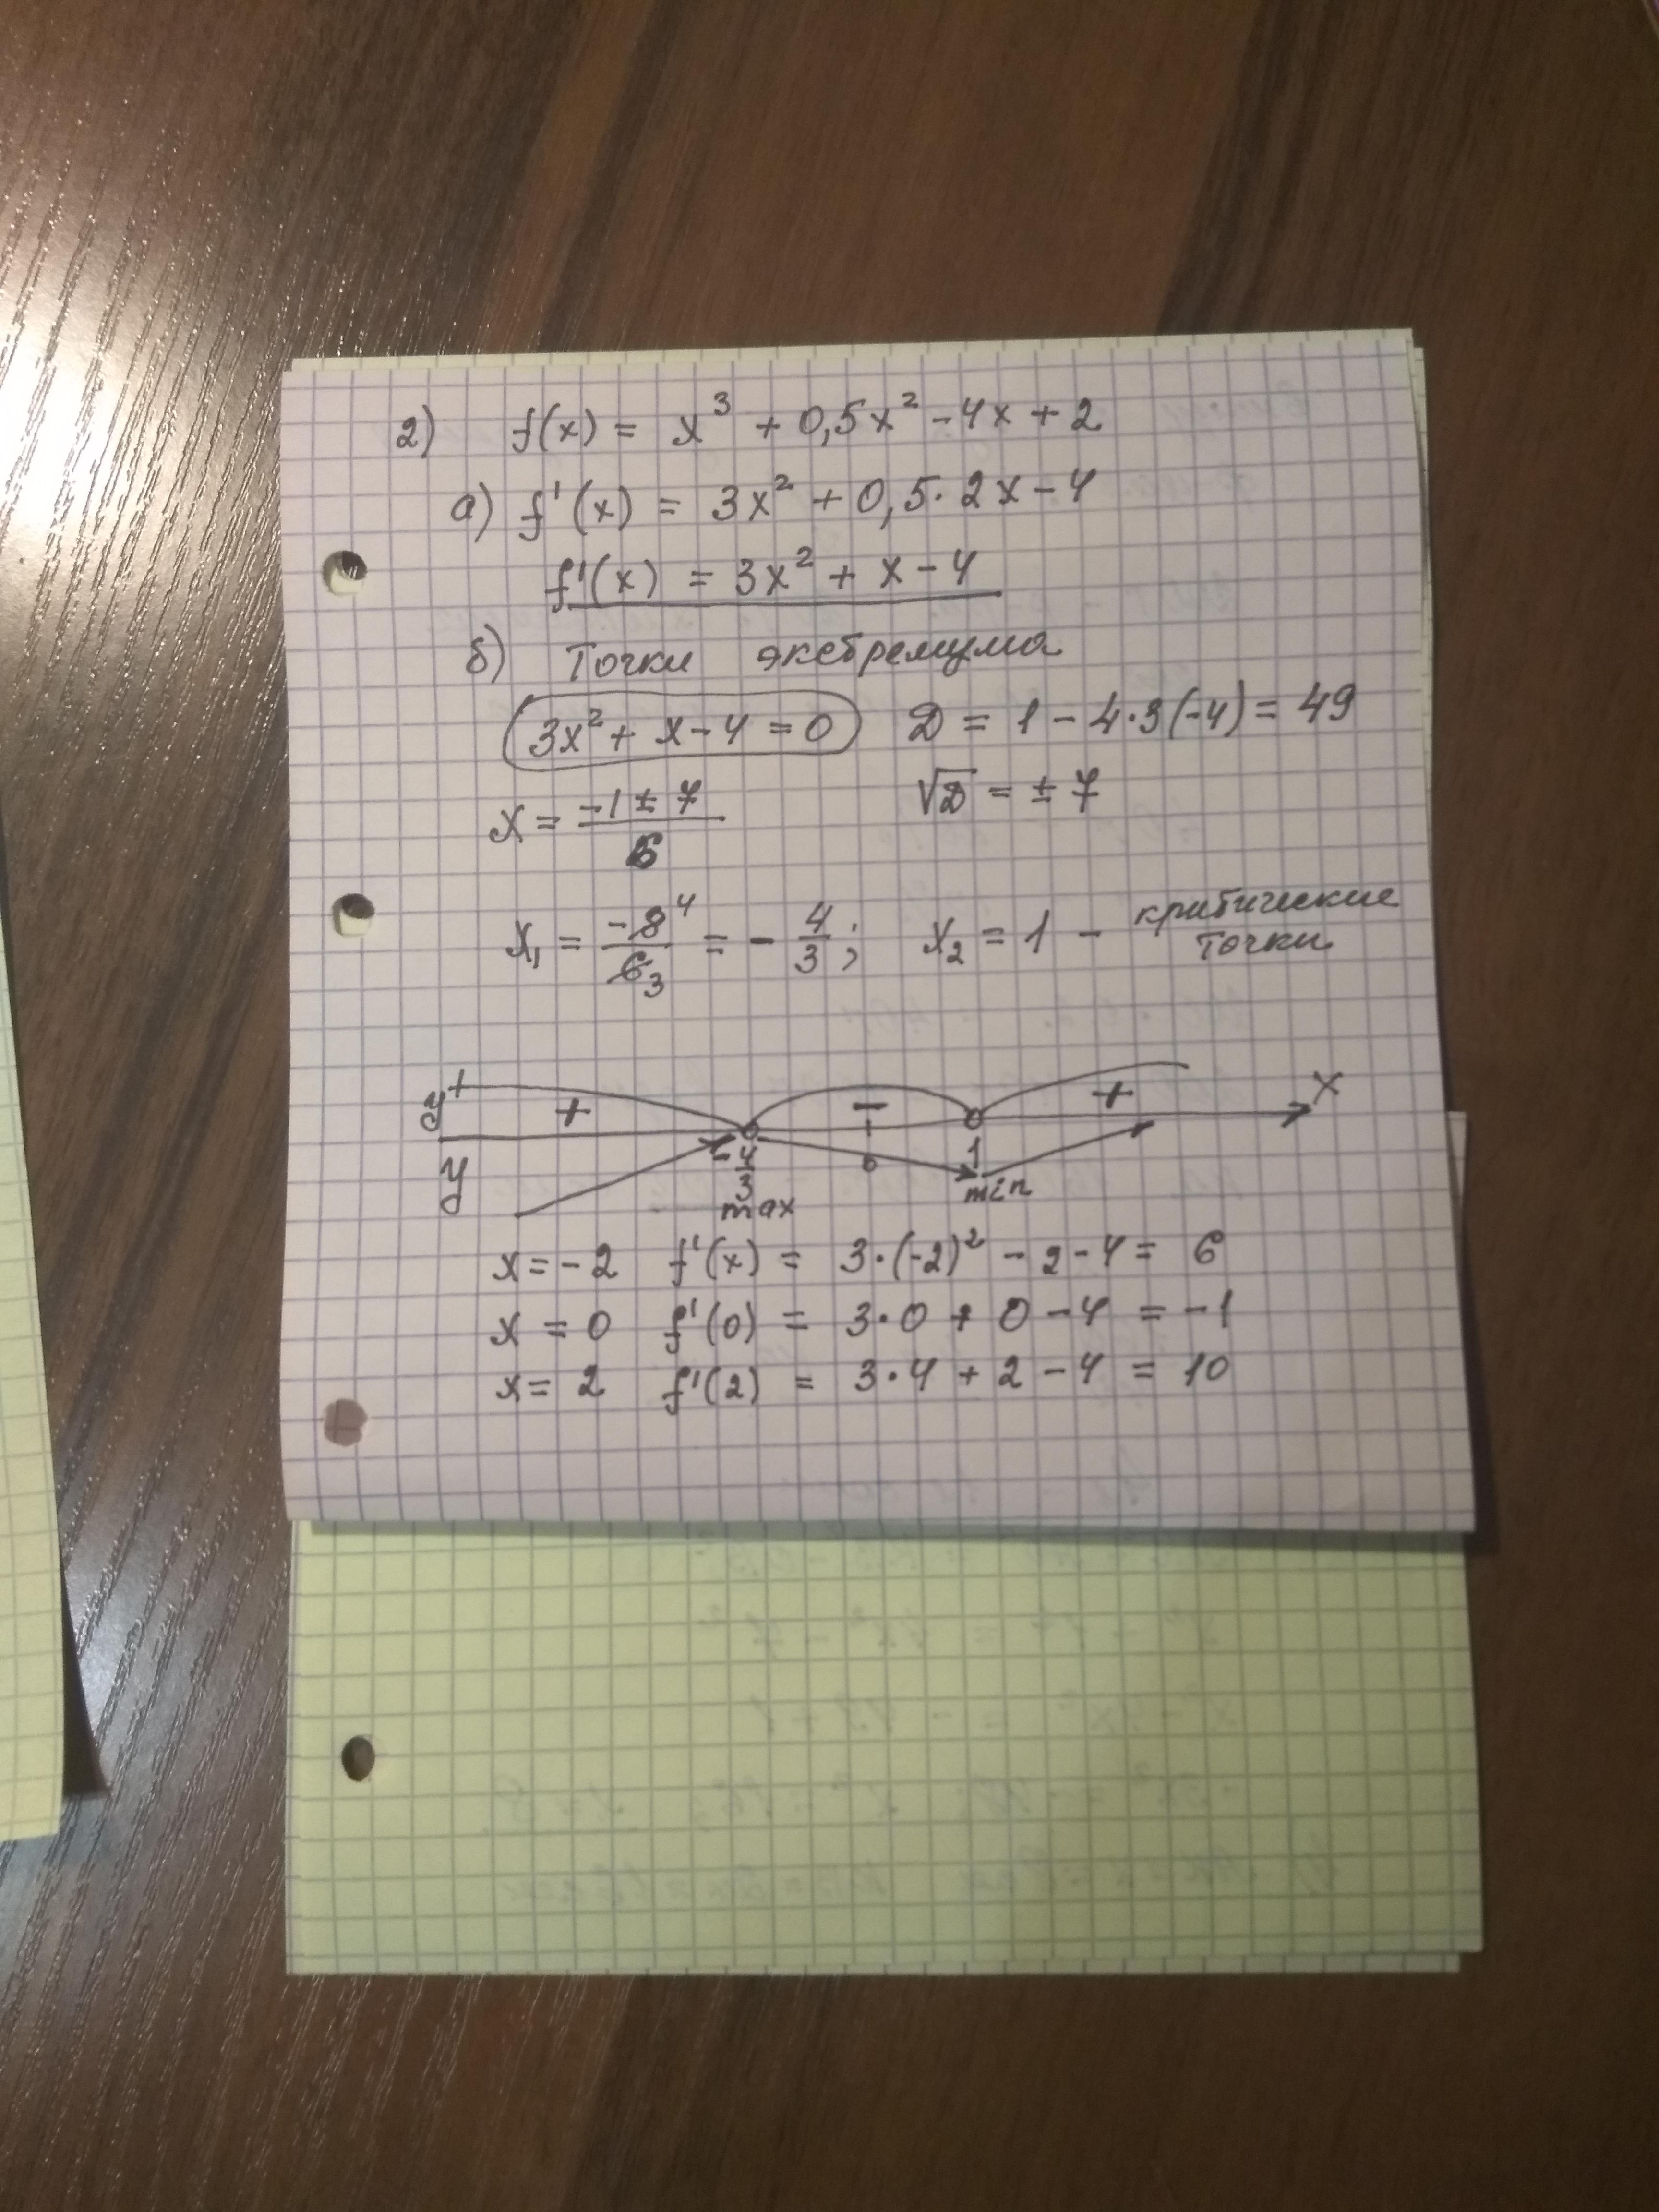 2) f(x) = x³ + 0,5x² - 4x + 2
а) f'(x) = 3x² + 0,5·2x - 4
f'(x) = 3x² + x - 4
б) Точки экстремума
3x² + x - 4 = 0 D = 1 - 4·3(-4) = 49
x = (-1 ± 7)/6 √D = ± 7
x₁ = -8/6 4 3 = - 4/3; x₂ = 1 - критические точки
y' + - + x
y -4/3 1
max min
x = -2 f'(x) = 3·(-2)² - 2 - 4 = 6
x = 0 f'(0) = 3·0 + 0 - 4 = -1
x = 2 f'(2) = 3·4 + 2 - 4 = 10